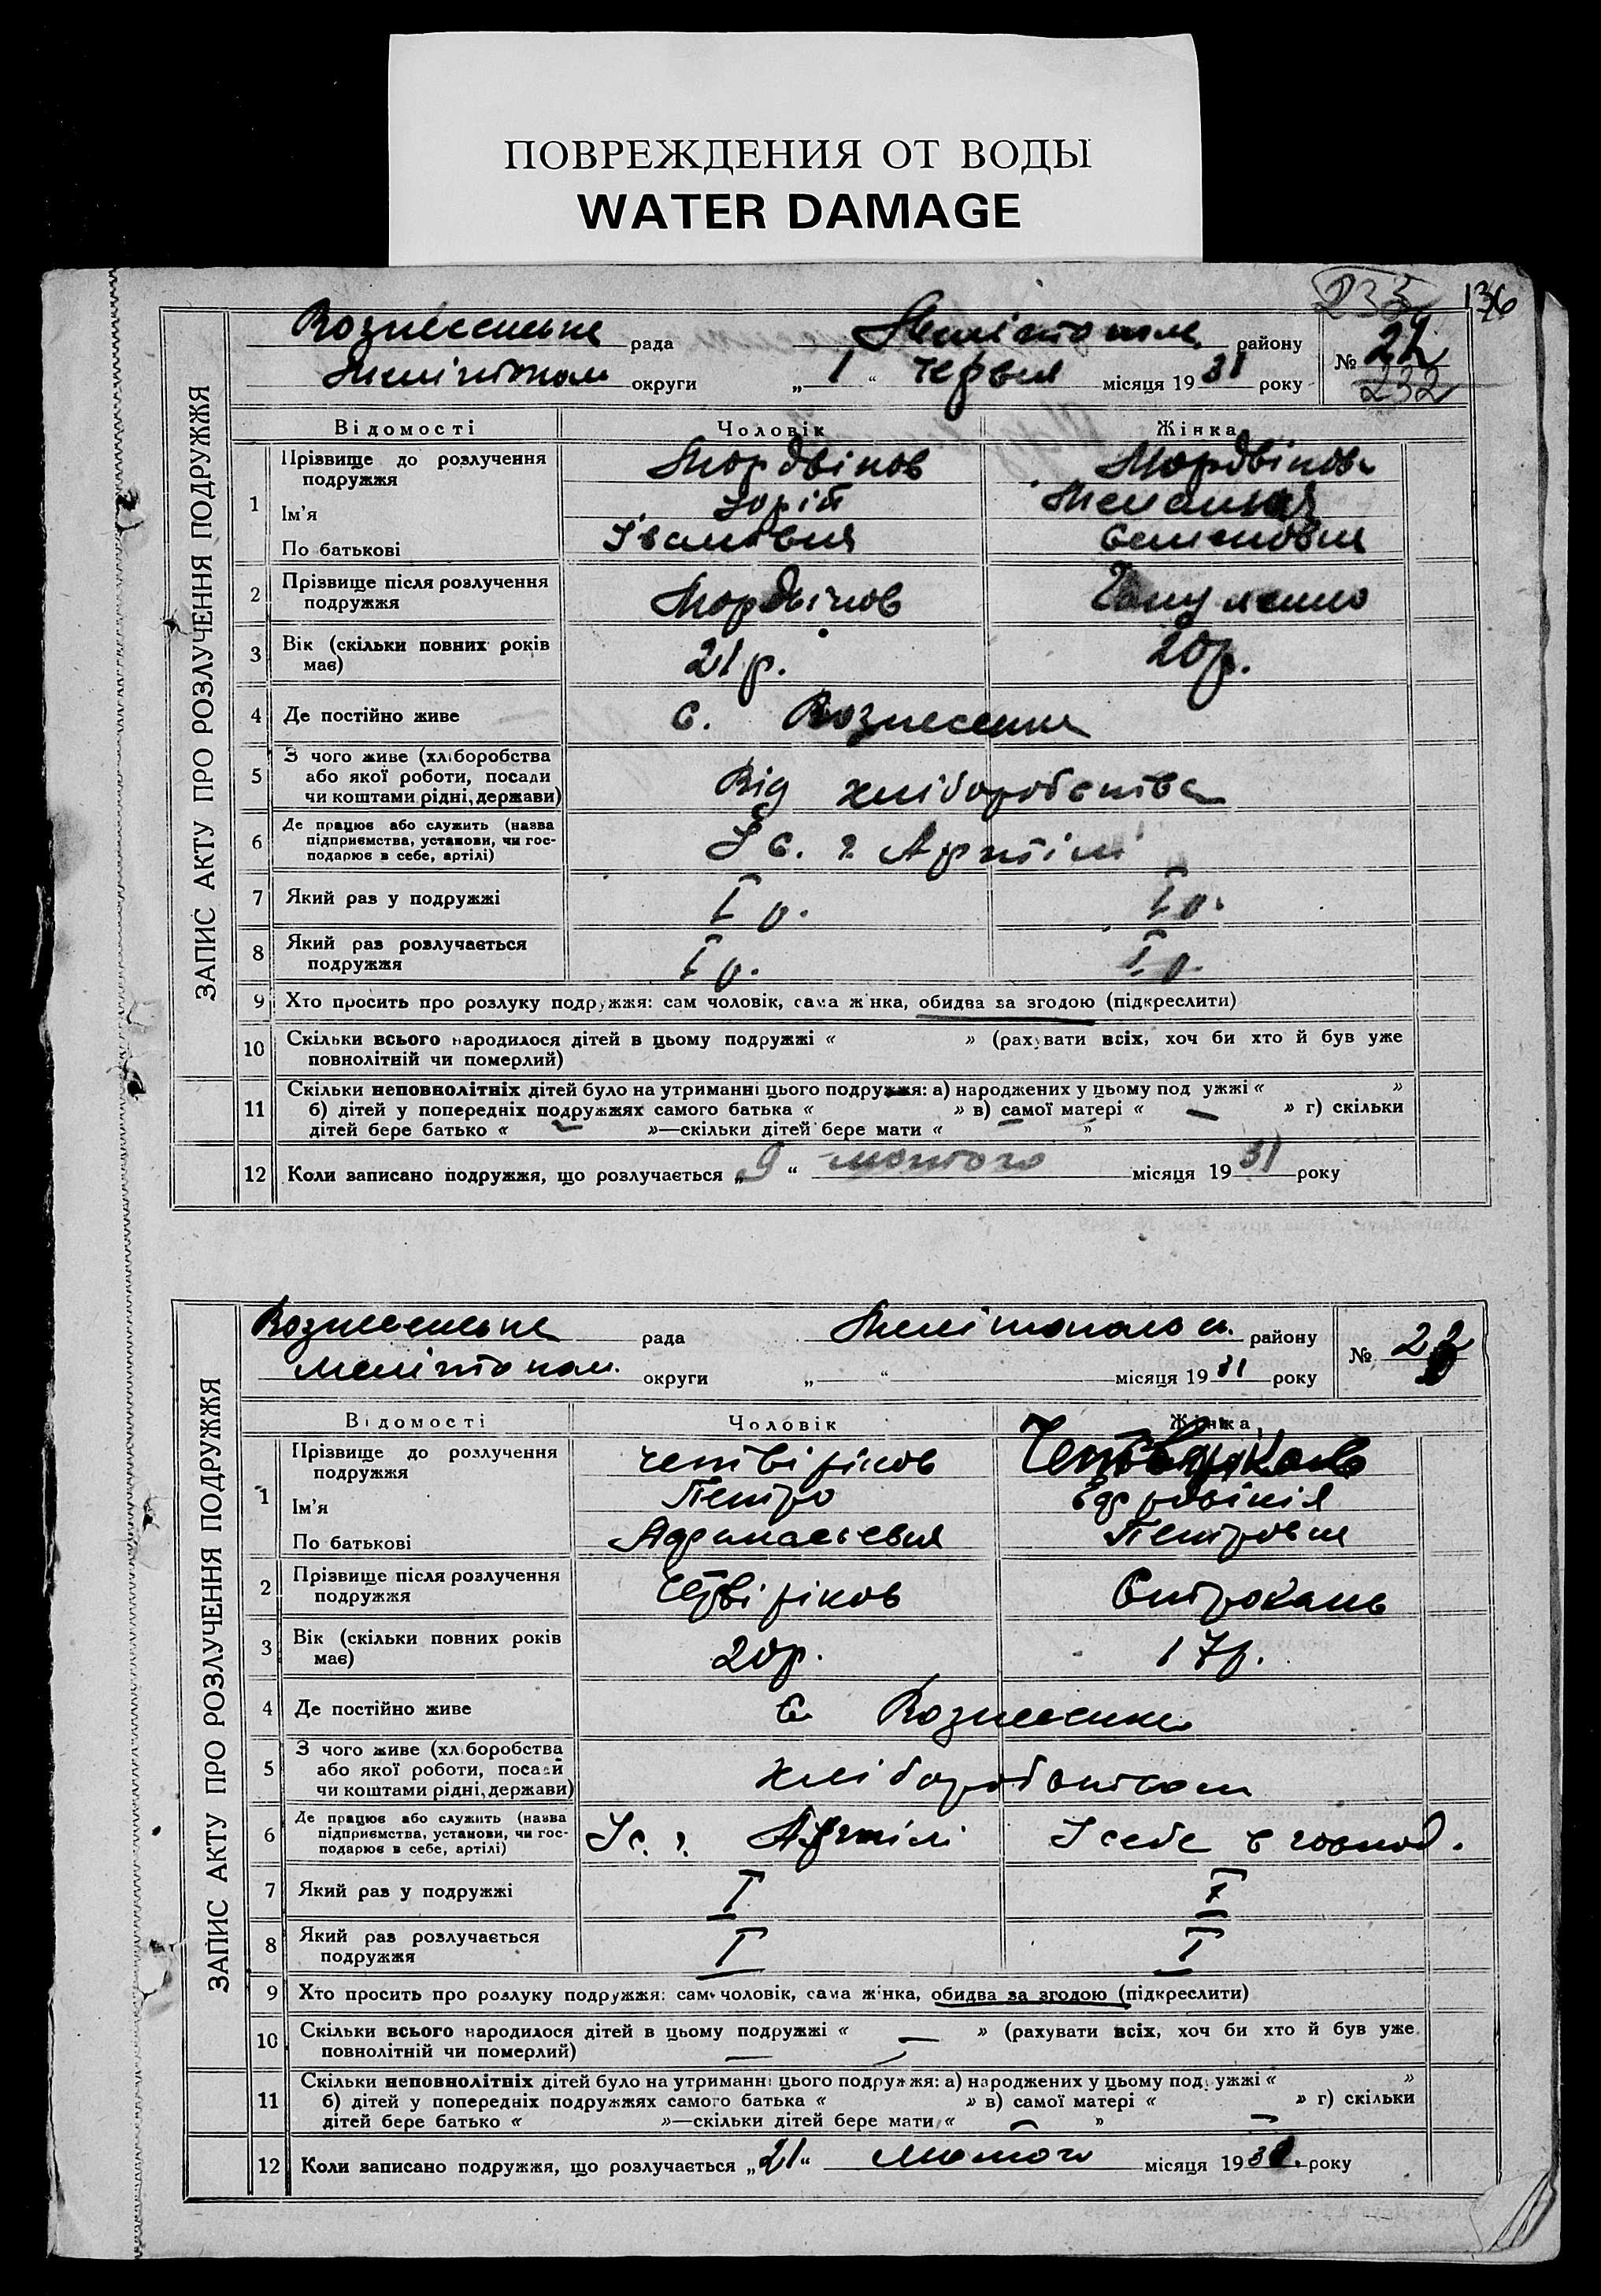 ПОВРЕЖДЕНИЯ ОТ ВОДЫ
WATER DAMAGE
235 136
ЗАПИС АКТУ ПРО РОЗЛУЧЕННЯ ПОДРУЖЖЯ
Вознесенська рада Мелітопол. району № 21
Мелітопол округи „ 1 “ червня місяця 19 31 року 232
Відомості Чоловік Жінка
1 Прізвище до розлучення подружжя Мордвінов Мордвінова
Ім'я Юрій Меланія
По батькові Івановия Семеновна
2 Прізвище після розлучення подружжя Мордвінов
3 Вік (скільки повних років має) 21 р. 20 р.
4 Де постійно живе с. Вознесенка
5 З чого живе (хліборобства або якої роботи, посади чи коштами рідні, держави) Від хліборобства
6 Де працює або служить (назва підприємства, установи, чи господарює в себе, артілі) У с. г. Артілі
7 Який раз у подружжі I р. I р.
8 Який раз розлучається подружжя I р. I р.
9 Хто просить про розлуку подружжя: сам чоловік, сама жінка, обидва за згодою (підкреслити)
10 Скільки всього народилося дітей в цьому подружжі « » (рахувати всіх, хоч би хто й був уже
повнолітній чи померлий)
11 Скільки неповнолітніх дітей було на утриманні цього подружжя: а) народжених у цьому подружжі « »
б) дітей у попередніх подружжях самого батька « » в) самої матері « — » г) скільки
дітей бере батько « — »—скільки дітей бере мати « »
12 Коли записано подружжя, що розлучається „ 9 “ лютого місяця 19 31 року
ЗАПИС АКТУ ПРО РОЗЛУЧЕННЯ ПОДРУЖЖЯ
Вознесенська рада Мелітопольск. району № 22
Мелітопол. округи „ “ місяця 19 31 року
Відомості Чоловік Жінка
1 Прізвище до розлучення подружжя Четвіріков
Ім'я Петро Єфросінія
По батькові Афанасьевия Петровна
2 Прізвище після розлучення подружжя Четвіріков Строкань
3 Вік (скільки повних років має) 20 р. 17 р.
4 Де постійно живе с. Вознесенка
5 З чого живе (хліборобства або якої роботи, посади чи коштами рідні, держави) хліборобством
6 Де працює або служить (назва підприємства, установи, чи господарює в себе, артілі) У с. г. Артілі У себе в господ.
7 Який раз у подружжі I I
8 Який раз розлучається подружжя I I
9 Хто просить про розлуку подружжя: сам чоловік, сама жінка, обидва за згодою (підкреслити)
10 Скільки всього народилося дітей в цьому подружжі « — » (рахувати всіх, хоч би хто й був уже
повнолітній чи померлий)
11 Скільки неповнолітніх дітей було на утриманні цього подружжя: а) народжених у цьому подружжі « »
б) дітей у попередніх подружжях самого батька « » в) самої матері « » г) скільки
дітей бере батько « »—скільки дітей бере мати « — »
12 Коли записано подружжя, що розлучається „ 21 “ лютого місяця 19 31 року